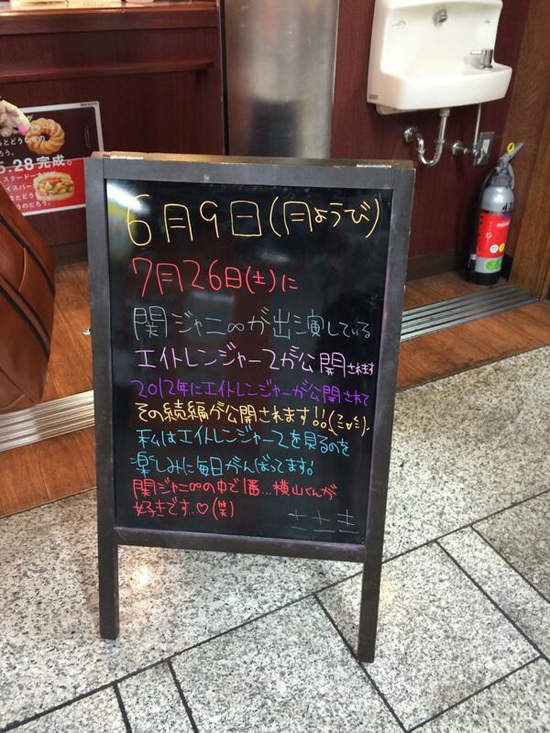 6月9日(月ようび)
7月26日(土)に
関ジャニ∞が出演している
エイトレンジャー2が公開されます
2012年にエイトレンジャーが公開されて
その続編が公開されます!!(ミ'v'ミ).
私はエイトレンジャー2を見るのを
楽しみに毎日がんばってます。
関ジャニ∞の中で1番…横山くんが
好きです…♡(笑)
ささき
5.28完成。